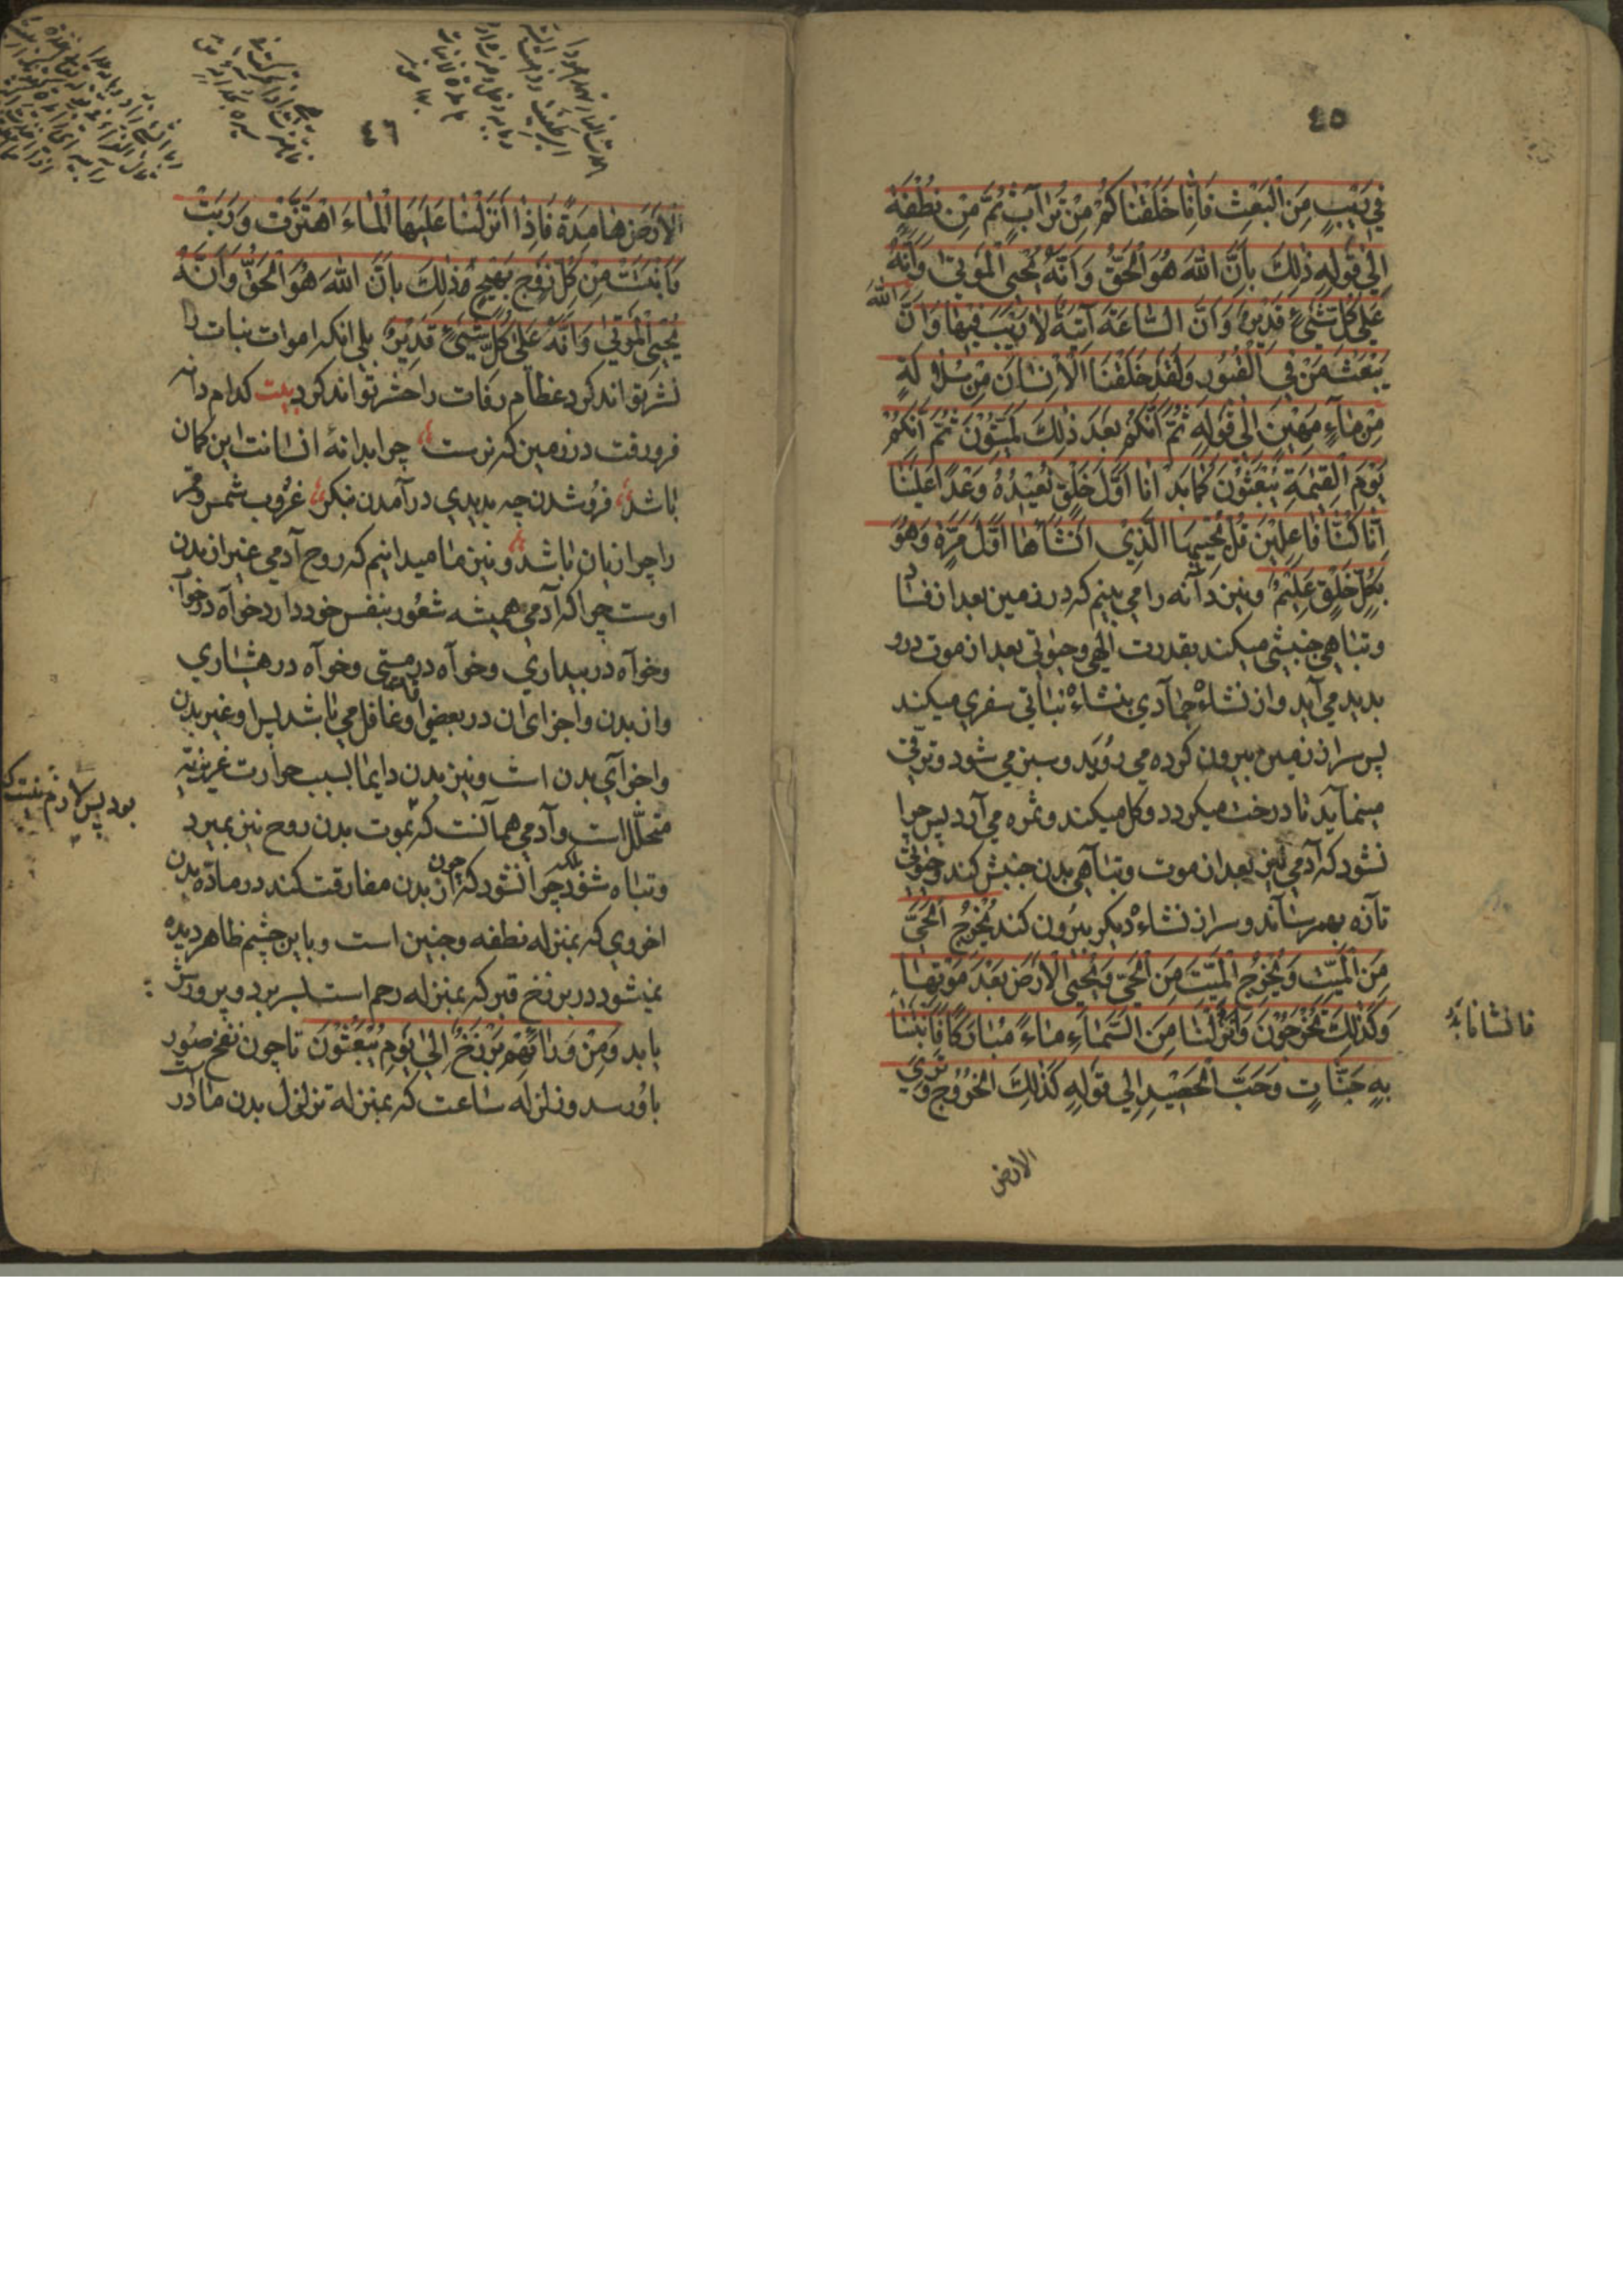 ٤٥
فِي رَيْبٍ مِنَ الْبَعْثِ فَاِنَّا خَلَقْنَاكُمْ مِنْ تُرَابٍ ثُمَّ مِنْ نُطْفَةٍ
اِلٰي قَولِهِ ذٰلِكَ بِاَنَّ اللّٰهَ هُوَ الْحَقُّ وَاَنَّهُ يُحْيِي الْمَوْتٰي وَاَنَّهُ
عَلٰي كُلِّ شَيْءٍ قَدِيْرٌ وَاَنَّ السَّاعَةَ آتِيَةٌ لَا رَيْبَ فِيْهَا وَاَنَّ اللّٰهَ
يَبْعَثُ مَنْ فِي الْقُبُورِ وَلَقَدْ خَلَقْنَا الْاِنْسَانَ مِنْ سُلَالَةٍ
مِنْ مَاءٍ مَهِيْنٍ اِلٰي قَوْلِهِ ثُمَّ اِنَّكُمْ بَعْدَ ذٰلِكَ لَمَيِّتُوْنَ ثُمَّ اِنَّكُمْ
يَوْمَ الْقِيٰمَةِ تُبْعَثُوْنَ كَمَا بَدَاْنَا اَوَّلَ خَلْقٍ نُعِيْدُهُ وَعْدًا عَلَيْنَا
اِنَّا كُنَّا فَاعِلِيْنَ قُلْ يُحْيِيْهَا الَّذِيْ اَنْشَاَهَا اَوَّلَ مَرَّةٍ وَهُوَ
بِكُلِّ خَلْقٍ عَلِيْمٌ ونيز دانه را مي بينيم كه در زمين بعد از فساد
وتباهي جنبشي ميكند بقدرت الهي وحيوتي بعد از موت درو
بديد مي آيد واز نشاءْ جمادي بنشاءْ نباتي سفري ميكند
پس سر از زمين بيرون كرده مي رويد وسبز مي شود وترقي
مينمايد تا درخت ميكردد وكل ميكند وثمره مي آرد پس چرا
نشود كه آدمي نيز بعد از موت وتباهي بدن جنبش كند وحيوتي
تازه بهم رساند وسر از نشاءْ ديكر بيرون كند يُخْرِجُ الْحَيَّ
مِنَ الْمَيِّتِ وَيُخْرِجُ الْمَيِّتَ مِنَ الْحَيِّ وَيُحْيِي الْاَرْضَ بَعْدَ مَوْتِهَا
وَكَذٰلِكَ تُخْرَجُوْنَ وَاَنْزَلْنَا مِنَ السَّمَاءِ مَاءً مُبَارَكًا فَاَنْبَتْنَا
بِهِ جَنَّاتٍ وَحَبَّ الْحَصِيْدِ اِلٰي قَوْلِهِ كَذٰلِكَ الْخُرُوْجُ وَتَرَي
الارض
٤٦
الْاَرْضَ هَامِدَةً فَاِذَا اَنْزَلْنَا عَلَيْهَا الْمَاءَ اهْتَزَّتْ وَرَبَتْ
وَاَنْبَتَتْ مِنْ كُلِّ زَوْجٍ بَهِيْجٍ ذٰلِكَ بِاَنَّ اللّٰهَ هُوَ الْحَقُّ وَاَنَّهُ
يُحْيِي الْمَوْتٰي وَاَنَّهُ عَلٰي كُلِّ شَيْءٍ قَدِيْرٌ بلي انكه اموات نبات را
نشر تواند كرد عظام رفات را حشر تواند كرد بيت كدام دانه
فرو رفت در زمين كه نرست چرا بدانهٔ انسانت اين كمان
باشد فرو شدن چه بديدي در آمدن بنكر غروب شمس وقمر
را چرا زيان باشد ونيز ما ميدانيم كه روح آدمي غير از بدن
اوست چرا كه آدمي هميشه شعور بنفس خود دارد خواه در خواب
وخواه در بيداري وخواه در مستي وخواه در هشياري
واز بدن واجزاي ان در بعضي اوقات غافل مي باشد پس او غير بدن
واجزاي بدن است ونيز بدن دايما بسبب حرارت غريزيه
متحلل است وآدمي همانست كه بود پس لازم نيست كه بموت بدن روح نيز بميرد
وتباه شود بلكه چرا نشود كه چون از بدن مفارقت كند در مادّه بدن
اخروي كه بمنزله نطفه وجنين است وباين چشم ظاهر ديده
نميشود در برزخ قبر كه بمنزله رحم است بسر برد وپرورش
يابد وَمِنْ وَرَائِهِمْ بَرْزَخٌ اِلٰي يَوْمِ يُبْعَثُوْنَ تا چون نفخ صور
باو رسد وزلزله ساعت كه بمنزله تزلزل بدن مادر است